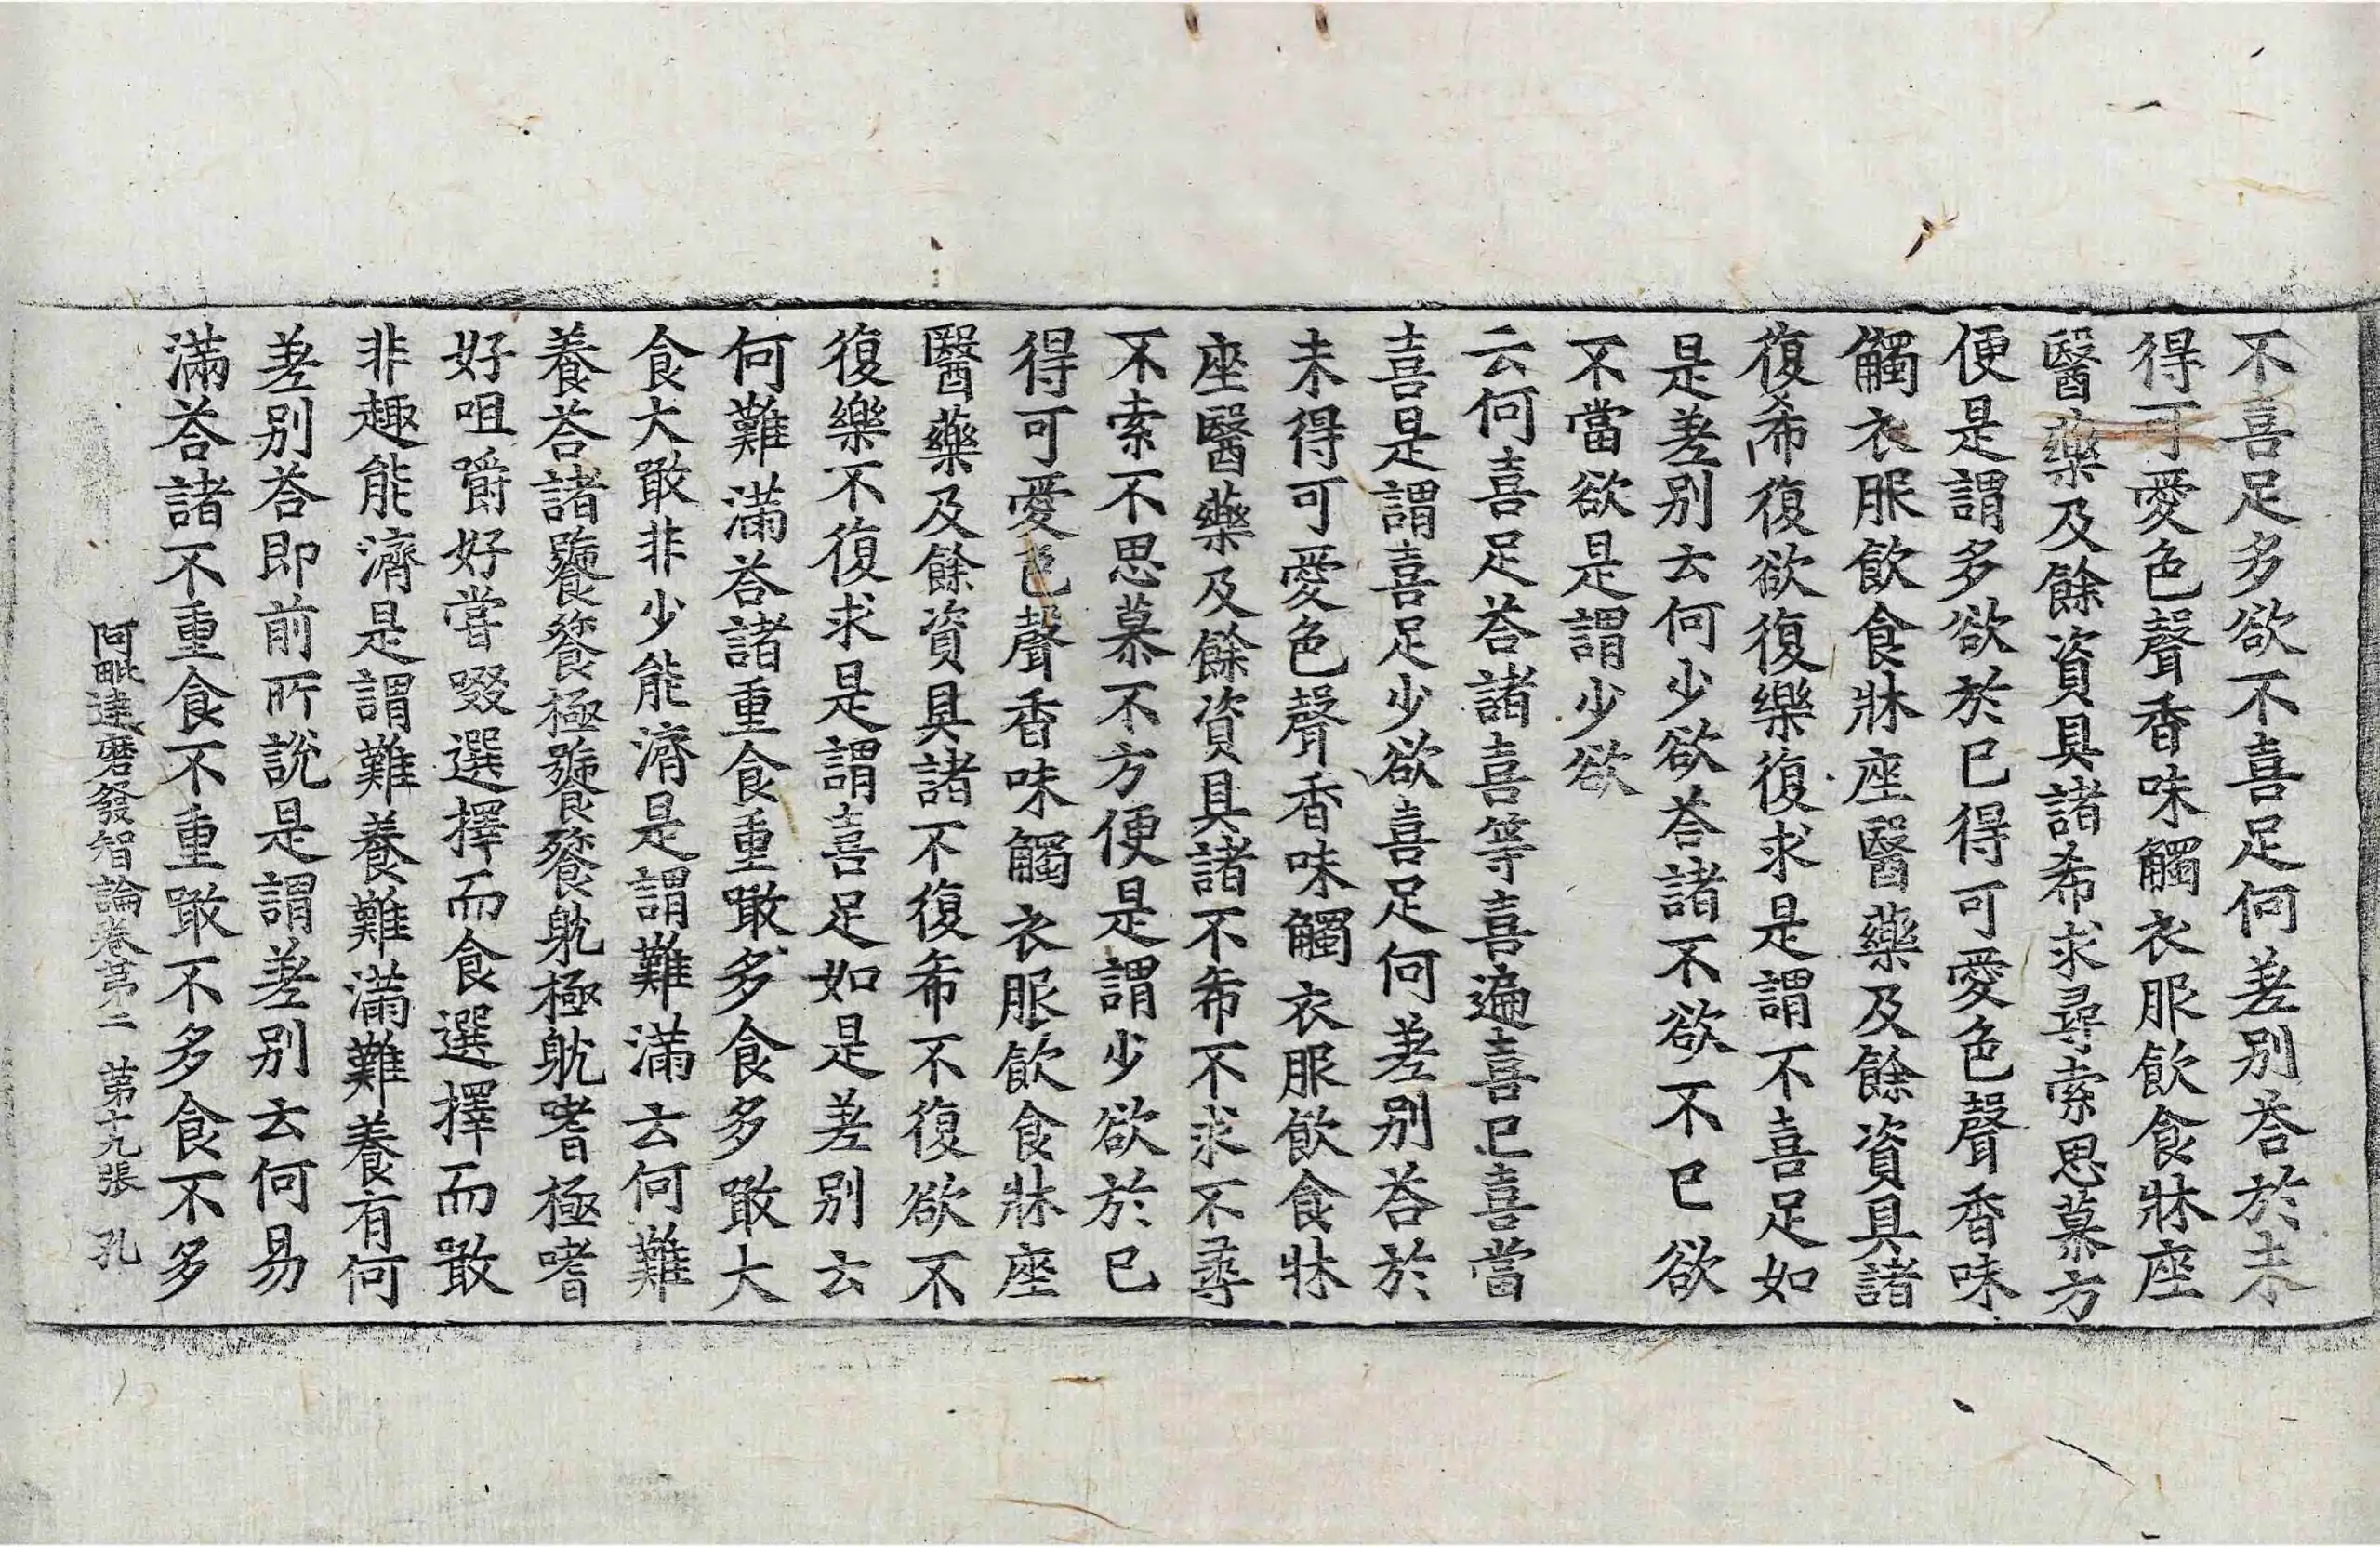 不喜足多欲不喜足何差別荅於未
得可愛色聲香味觸衣服飲食牀座
醫藥及餘資具諸希求尋索思慕方
便是謂多欲於已得可愛色聲香味
觸衣服飲食牀座醫藥及餘資具諸
復希復欲復樂復求是謂不喜足如
是差別云何少欲荅諸不欲不已欲
不當欲是謂少欲
云何喜足荅諸喜等喜遍喜已喜當
喜是謂喜足少欲喜足何差別荅於
未得可愛色聲香味觸衣服飲食牀
座醫藥及餘資具諸不希不求不尋
不索不思慕不方便是謂少欲於已
得可愛色聲香味觸衣服飲食牀座
醫藥及餘資具諸不復希不復欲不
復樂不復求是謂喜足如是差別云
何難滿荅諸重食重噉多食多噉大
食大噉非少能濟是謂難滿云何難
養荅諸饕餮極饕餮躭極躭嗜極嗜
好咀嚼好嘗啜選擇而食選擇而噉
非趣能濟是謂難養難滿難養有何
差別荅即前所說是謂差別云何易
滿荅諸不重食不重噉不多食不多
阿毗達磨發智論卷第二 第十九張 孔